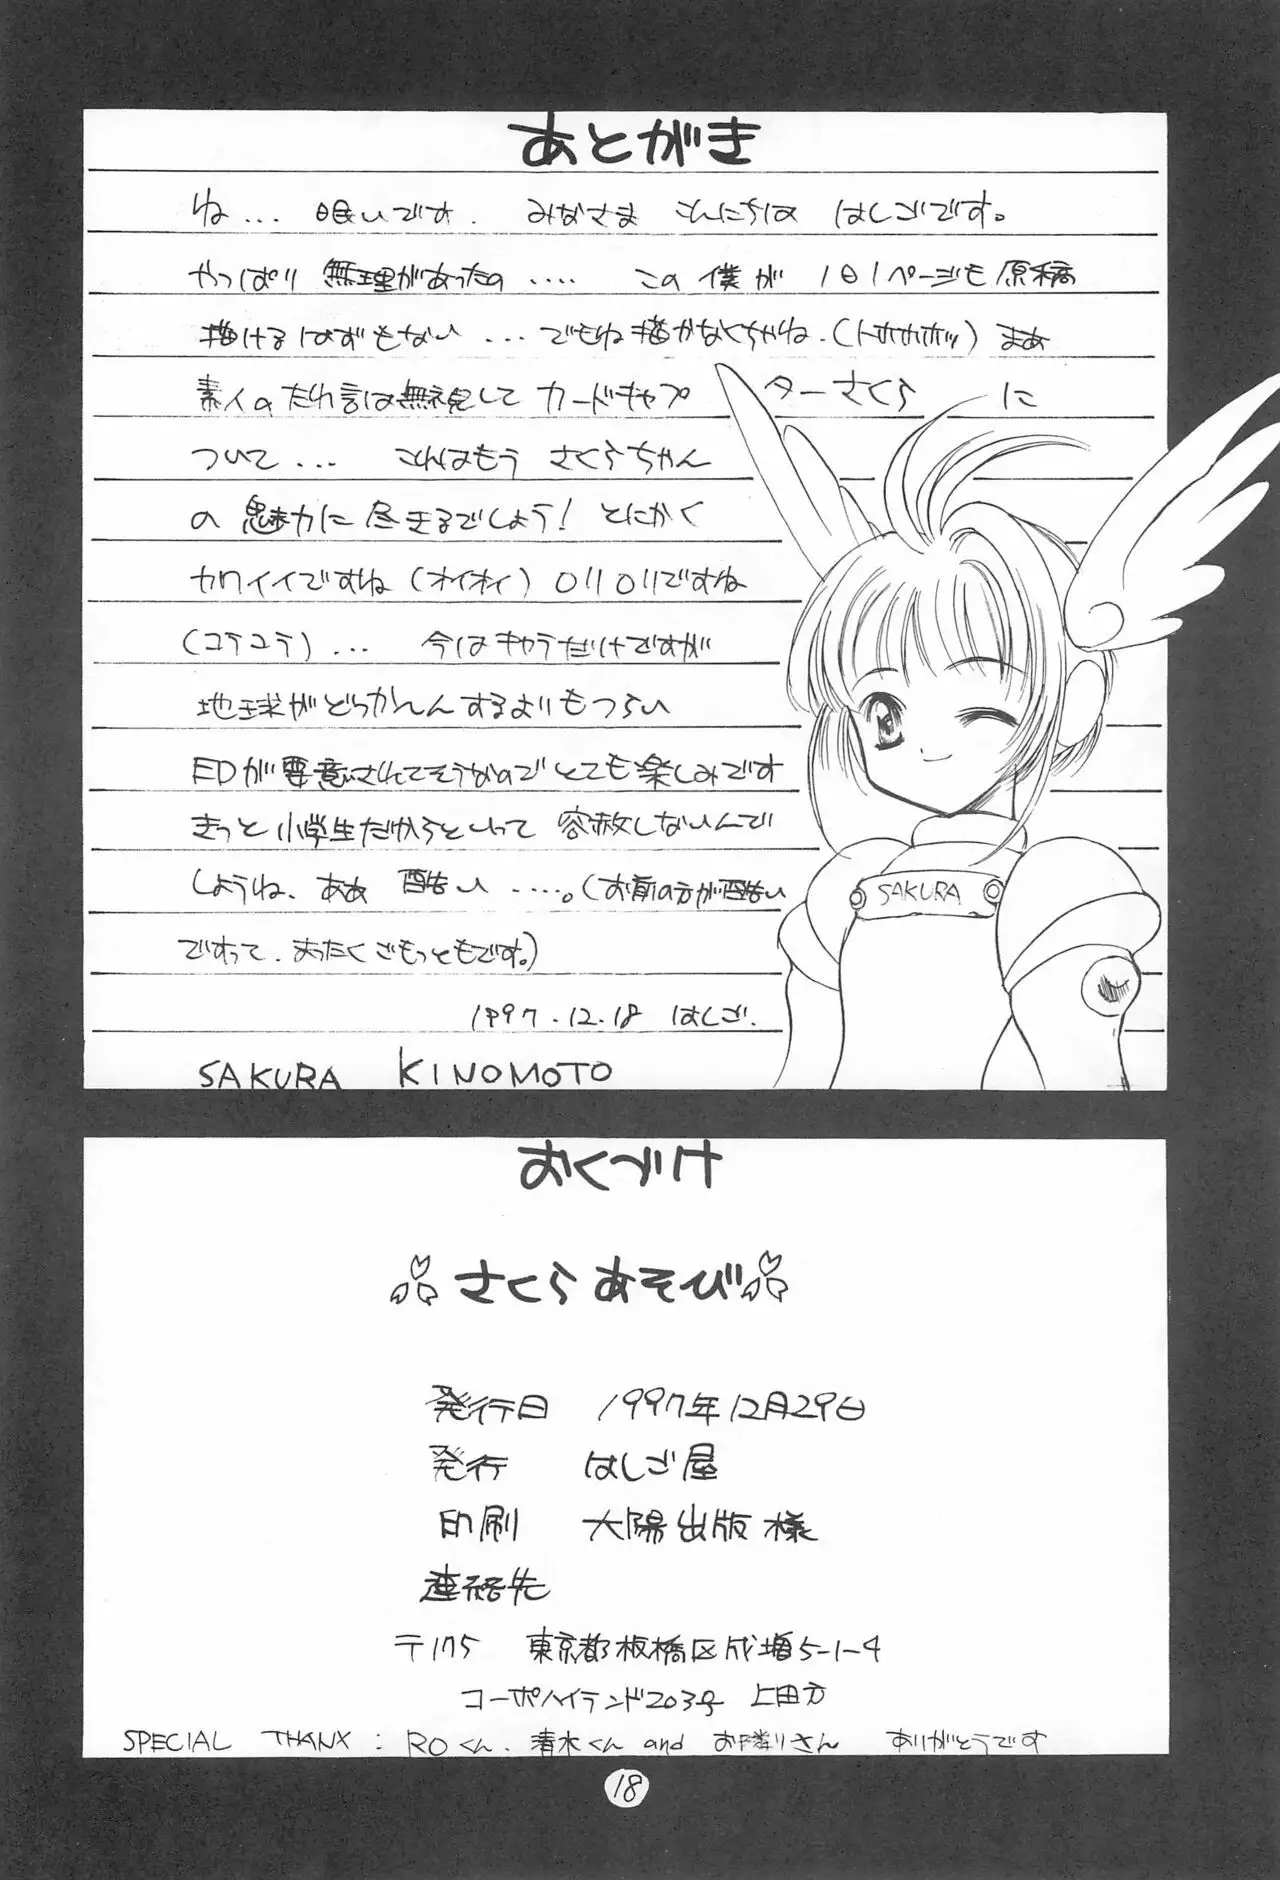 あとがき
ね... 眠いです. みなさま こんにちは はしごです。
やっぱり 無理があったの .... この 僕が 1日1ページも 原稿
描けるはずもない ... でもね 描かなくちゃね.(トホホホホッ) まあ
素人のたれ言は無視して カードキャプ ターさくら に
ついて... これはもう さくらちゃん
の 魅力に 尽きるでしょう! とにかく
カワイイですね (オイオイ) ロリロリですね
(コラコラ) ... 今は キャラだけですが
地球がどっかんんするよりもつらい
EDが 要意されてそうなので とても楽しみです
きっと 小学生だからといって 容赦しないんで
しょうね、ああ 酷い .....。(お前の方が酷い
ですって. まったくごもっともです。)
1997.12.18 はしご.
SAKURA KINOMOTO
SAKURA
おくづけ
さくらあそび
発行日 1997年12月29日
発行 はしご屋
印刷 大陽出版様
連絡先
〒175 東京都板橋区成増5-1-4
コーポハイランド203号 上田方
SPECIAL THANX : ROくん. 清水くん and お隣りさん ありがとうです
18